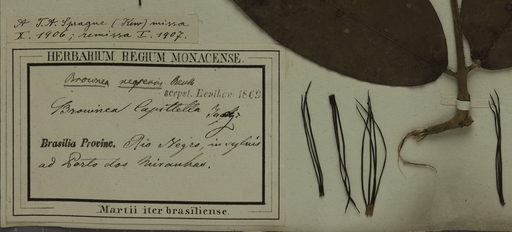 A T.A. Sprague (Kew) missa
X. 1906; remissa I. 1907.
HERBARIUM REGIUM MONACENSE.
Brownea negrensis Benth
scrpst. Benthan. 1869.
Brownea Capitella
Brasilia Provinc. Rio Negro, in sylvis
ad Porto dos Miranhas.
Martii iter brasiliense.